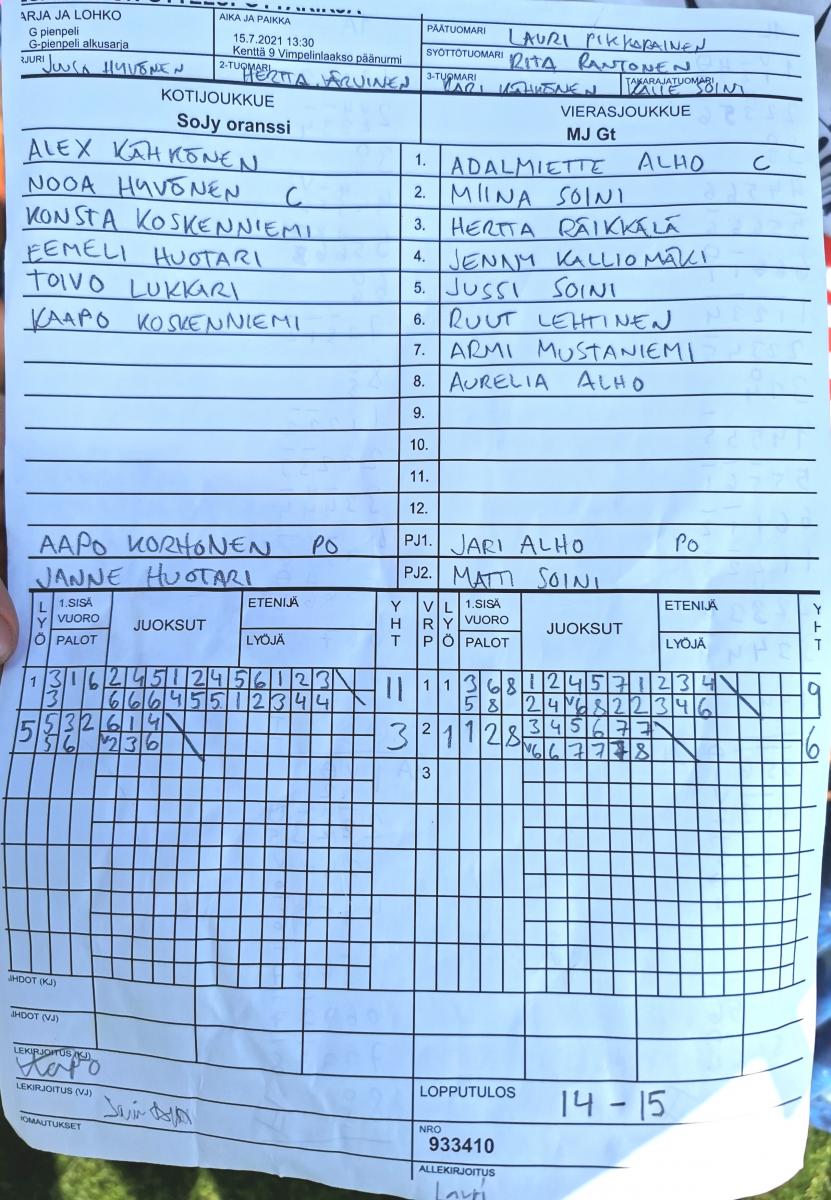 ARJA JA LOHKO
G pienpeli
G-pienpeli alkusarja
AIKA JA PAIKKA
15.7.2021 13:30
Kenttä 9 Vimpelinlaakso päänurmi
PÄÄTUOMARI LAURI PIKKARAINEN
SYÖTTÖTUOMARI RITA RANTONEN
RJURI JUUSA HYVÖNEN
2-TUOMARI HERTTA JÄRVINEN
3-TUOMARI KARI KÄHKÖNEN
TAKARAJATUOMARI KALLE SOINI
KOTIJOUKKUE
SoJy oranssi
VIERASJOUKKUE
MJ Gt
ALEX KÄHKÖNEN 1. ADALMIETTE ALHO C
NOOA HYVÖNEN C 2. MIINA SOINI
KONSTA KOSKENNIEMI 3. HERTTA RÄIKKÄLÄ
EEMELI HUOTARI 4. JENNY KALLIOMÄKI
TOIVO LUKKARI 5. JUSSI SOINI
KAAPO KOSKENNIEMI 6. RUUT LEHTINEN
7. ARMI MUSTANIEMI
8. AURELIA ALHO
9.
10.
11.
12.
AAPO KORHONEN PO PJ1. JARI ALHO PO
JANNE HUOTARI PJ2. MATTI SOINI
LYÖ 1.SISÄ VUORO PALOT JUOKSUT ETENIJÄ LYÖJÄ YHT VRP LYÖ 1.SISÄ VUORO PALOT JUOKSUT ETENIJÄ LYÖJÄ YHT
1 3 1 6 2 4 5 1 2 4 5 6 1 2 3 11 1 1 3 6 8 1 2 4 5 7 1 2 3 4 9
3 6 6 6 4 5 5 1 2 3 4 4 5 8 2 4 V6 8 2 2 3 4 6
5 5 3 2 6 1 4 3 2 1 1 2 8 3 4 5 6 7 7 6
5 6 V2 3 6 V6 6 7 7 7 8
3
JHDOT (KJ)
JHDOT (VJ)
LEKIRJOITUS (KJ)
LEKIRJOITUS (VJ)
IOMAUTUKSET
LOPPUTULOS 14 - 15
NRO
933410
ALLEKIRJOITUS
Lauri